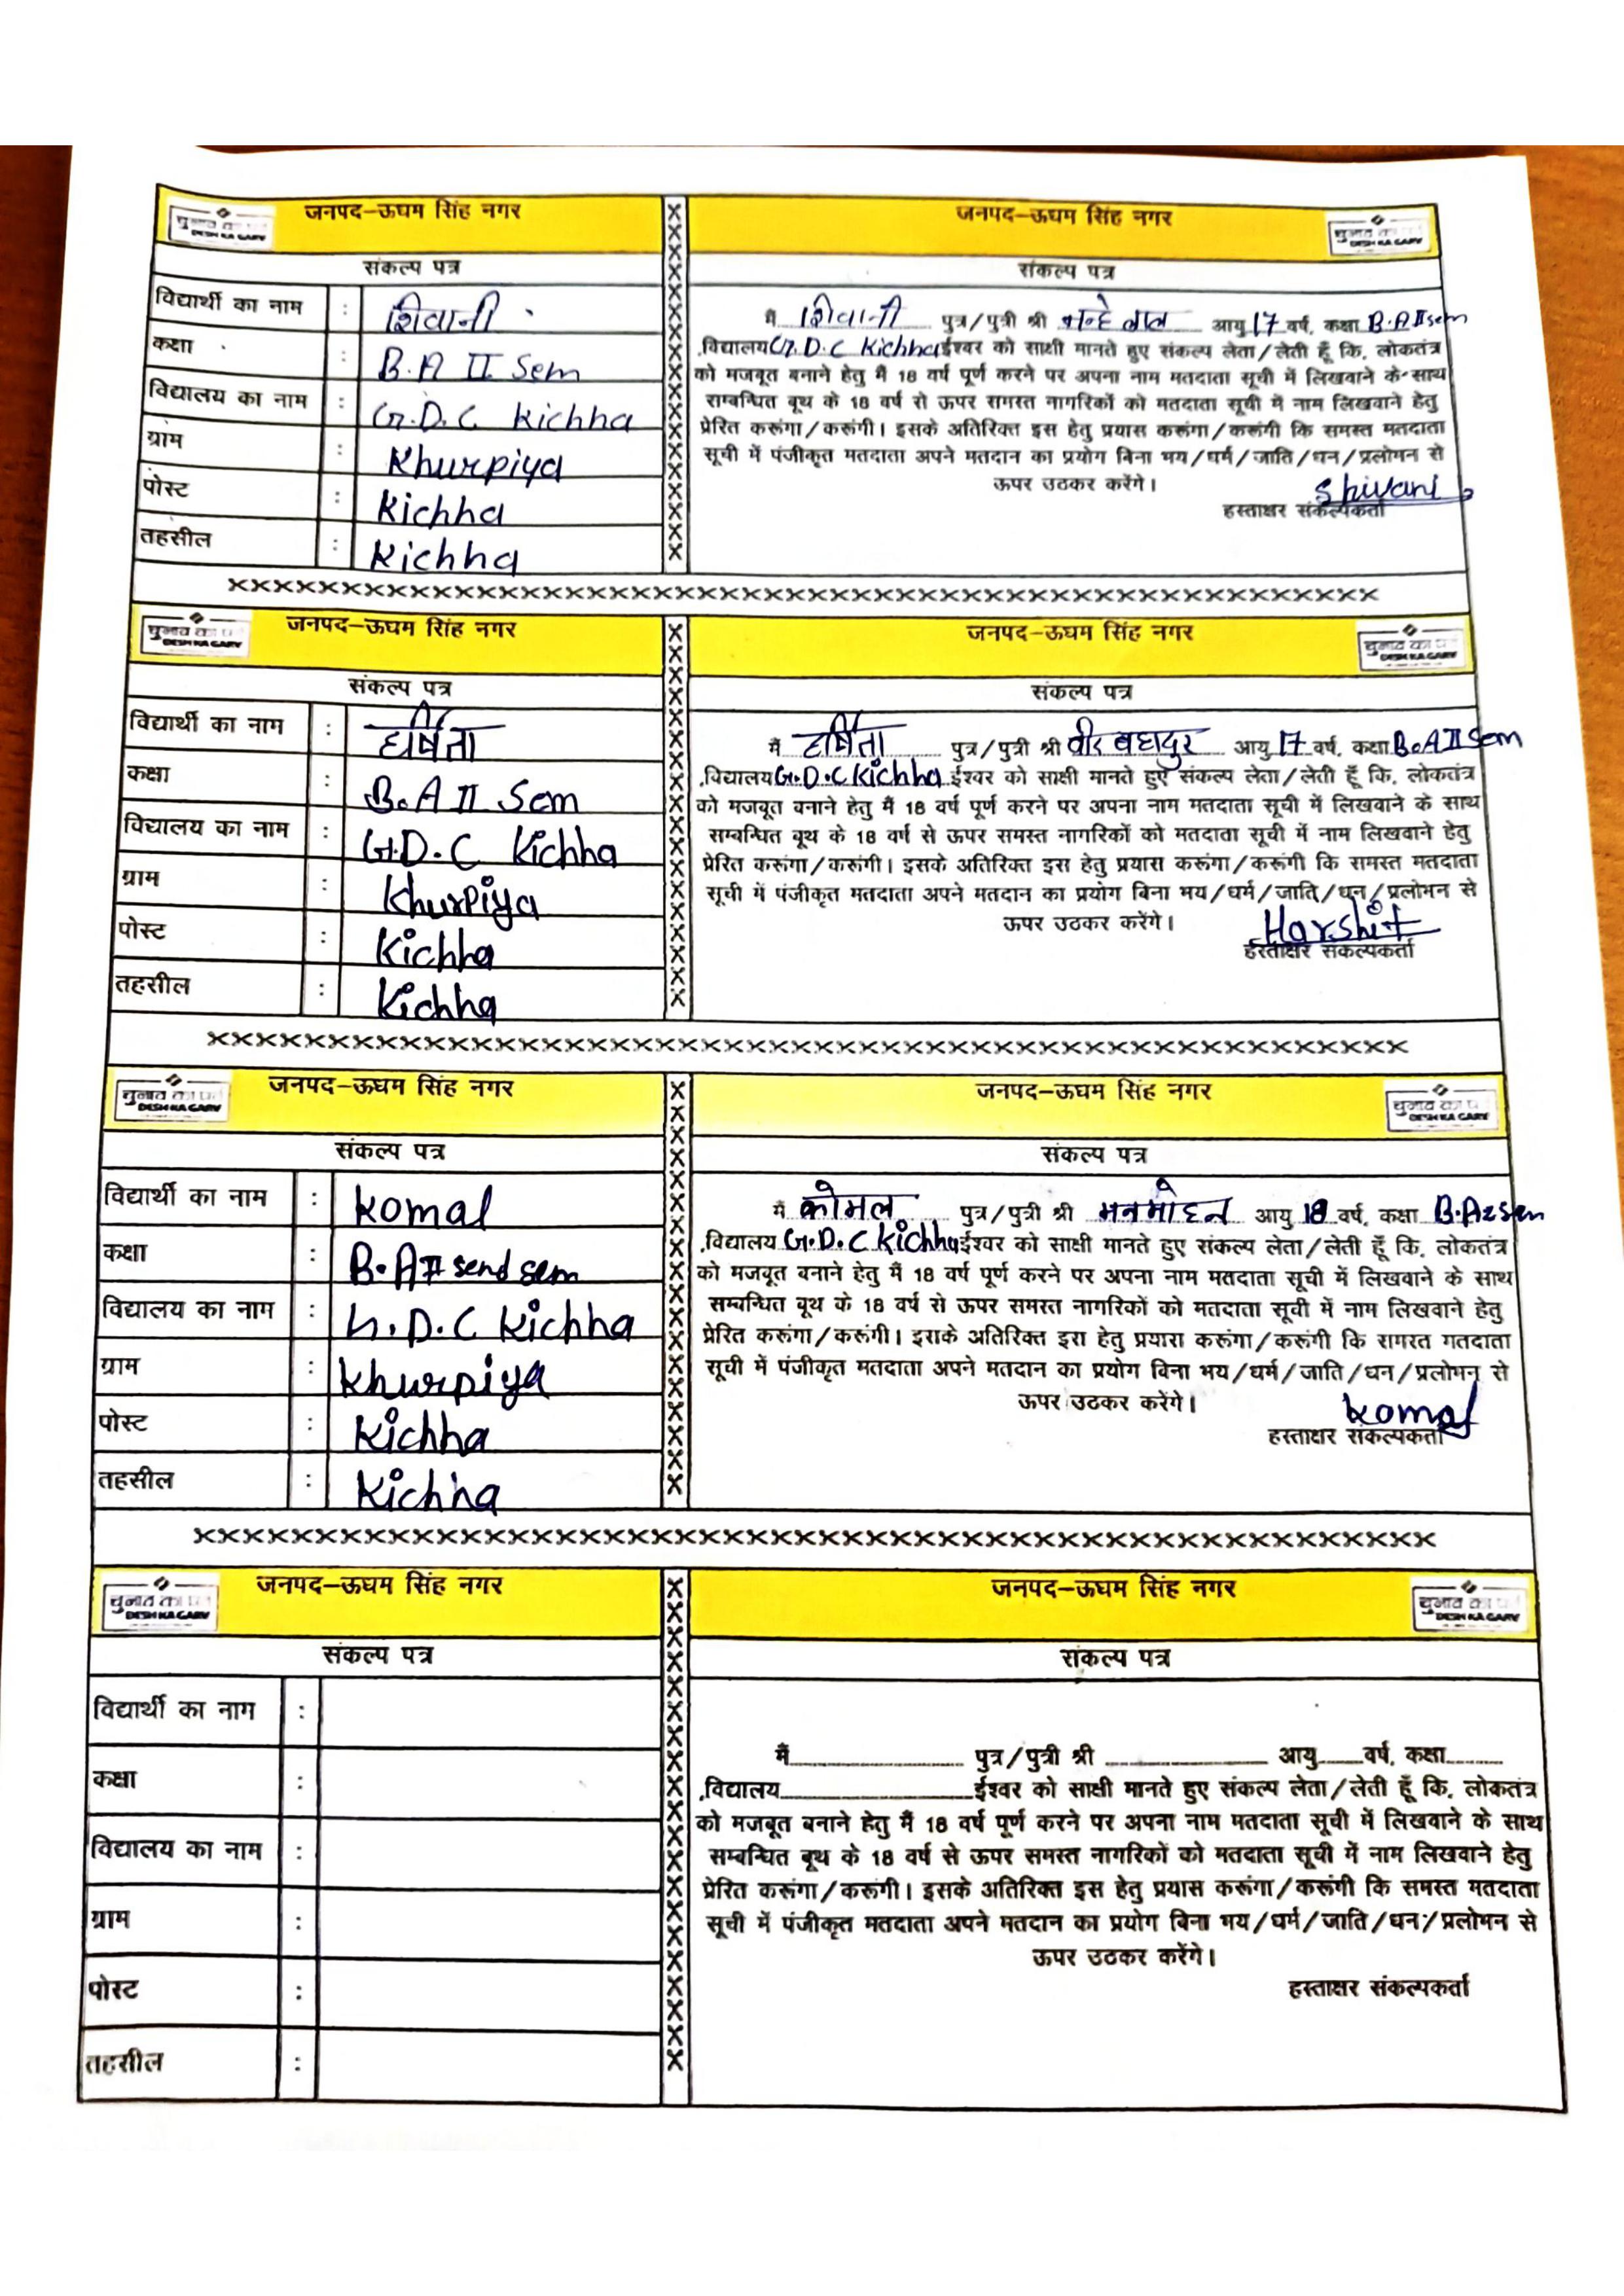 जनपद-ऊधम सिंह नगर
DESH KA GARV
संकल्प पत्र
विद्यार्थी का नाम : शिवानी
कक्षा : B.A II Sem
विद्यालय का नाम : G.D.C Kichha
ग्राम : Khurpiya
पोस्ट : Kichha
तहसील : Kichha
जनपद-ऊधम सिंह नगर
DESH KA GARV
संकल्प पत्र
मैं शिवानी पुत्र/पुत्री श्री आयु 17 वर्ष, कक्षा B.A II sem
,विद्यालय G.D.C Kichha ईश्वर को साक्षी मानते हुए संकल्प लेता/लेती हूँ कि, लोकतंत्र
को मजबूत बनाने हेतु मैं 18 वर्ष पूर्ण करने पर अपना नाम मतदाता सूची में लिखवाने के साथ
सम्बन्धित बूथ के 18 वर्ष से ऊपर समस्त नागरिकों को मतदाता सूची में नाम लिखवाने हेतु
प्रेरित करूंगा/करूंगी। इसके अतिरिक्त इस हेतु प्रयास करूंगा/करूंगी कि समस्त मतदाता
सूची में पंजीकृत मतदाता अपने मतदान का प्रयोग बिना भय/धर्म/जाति/धन/प्रलोभन से
ऊपर उठकर करेंगे।
Shivani
हस्ताक्षर संकल्पकर्ता
xxxxxxxxxxxxxxxxxxxxxxxxxxxxxxxxxxxxxxxxxxxxxxxxxxx
जनपद-ऊधम सिंह नगर
DESH KA GARV
संकल्प पत्र
विद्यार्थी का नाम : हर्षिता
कक्षा : B.A II Sem
विद्यालय का नाम : G.D.C Kichha
ग्राम : Khurpiya
पोस्ट : Kichha
तहसील : Kichha
जनपद-ऊधम सिंह नगर
DESH KA GARV
संकल्प पत्र
मैं हर्षिता पुत्र/पुत्री श्री वीर बहादुर आयु 17 वर्ष, कक्षा B.A II Sem
,विद्यालय G.D.C Kichha ईश्वर को साक्षी मानते हुए संकल्प लेता/लेती हूँ कि, लोकतंत्र
को मजबूत बनाने हेतु मैं 18 वर्ष पूर्ण करने पर अपना नाम मतदाता सूची में लिखवाने के साथ
सम्बन्धित बूथ के 18 वर्ष से ऊपर समस्त नागरिकों को मतदाता सूची में नाम लिखवाने हेतु
प्रेरित करूंगा/करूंगी। इसके अतिरिक्त इस हेतु प्रयास करूंगा/करूंगी कि समस्त मतदाता
सूची में पंजीकृत मतदाता अपने मतदान का प्रयोग बिना भय/धर्म/जाति/धन/प्रलोभन से
ऊपर उठकर करेंगे।
हस्ताक्षर संकल्पकर्ता
xxxxxxxxxxxxxxxxxxxxxxxxxxxxxxxxxxxxxxxxxxxxxxxxxxx
जनपद-ऊधम सिंह नगर
DESH KA GARV
संकल्प पत्र
विद्यार्थी का नाम : Komal
कक्षा : B.A II send sem
विद्यालय का नाम : G.D.C Kichha
ग्राम : Khurpiya
पोस्ट : Kichha
तहसील : Kichha
जनपद-ऊधम सिंह नगर
DESH KA GARV
संकल्प पत्र
मैं कोमल पुत्र/पुत्री श्री मनमोहन आयु 18 वर्ष, कक्षा B.A 2 Sem
,विद्यालय G.D.C Kichha ईश्वर को साक्षी मानते हुए संकल्प लेता/लेती हूँ कि, लोकतंत्र
को मजबूत बनाने हेतु मैं 18 वर्ष पूर्ण करने पर अपना नाम मतदाता सूची में लिखवाने के साथ
सम्बन्धित बूथ के 18 वर्ष से ऊपर समस्त नागरिकों को मतदाता सूची में नाम लिखवाने हेतु
प्रेरित करूंगा/करूंगी। इसके अतिरिक्त इस हेतु प्रयास करूंगा/करूंगी कि समस्त मतदाता
सूची में पंजीकृत मतदाता अपने मतदान का प्रयोग बिना भय/धर्म/जाति/धन/प्रलोभन से
ऊपर उठकर करेंगे।
Komal
हस्ताक्षर संकल्पकर्ता
xxxxxxxxxxxxxxxxxxxxxxxxxxxxxxxxxxxxxxxxxxxxxxxxxxx
जनपद-ऊधम सिंह नगर
DESH KA GARV
संकल्प पत्र
विद्यार्थी का नाम :
कक्षा :
विद्यालय का नाम :
ग्राम :
पोस्ट :
तहसील :
जनपद-ऊधम सिंह नगर
DESH KA GARV
संकल्प पत्र
मैं.................... पुत्र/पुत्री श्री .................... आयु......वर्ष, कक्षा........
,विद्यालय....................ईश्वर को साक्षी मानते हुए संकल्प लेता/लेती हूँ कि, लोकतंत्र
को मजबूत बनाने हेतु मैं 18 वर्ष पूर्ण करने पर अपना नाम मतदाता सूची में लिखवाने के साथ
सम्बन्धित बूथ के 18 वर्ष से ऊपर समस्त नागरिकों को मतदाता सूची में नाम लिखवाने हेतु
प्रेरित करूंगा/करूंगी। इसके अतिरिक्त इस हेतु प्रयास करूंगा/करूंगी कि समस्त मतदाता
सूची में पंजीकृत मतदाता अपने मतदान का प्रयोग बिना भय/धर्म/जाति/धन/प्रलोभन से
ऊपर उठकर करेंगे।
हस्ताक्षर संकल्पकर्ता